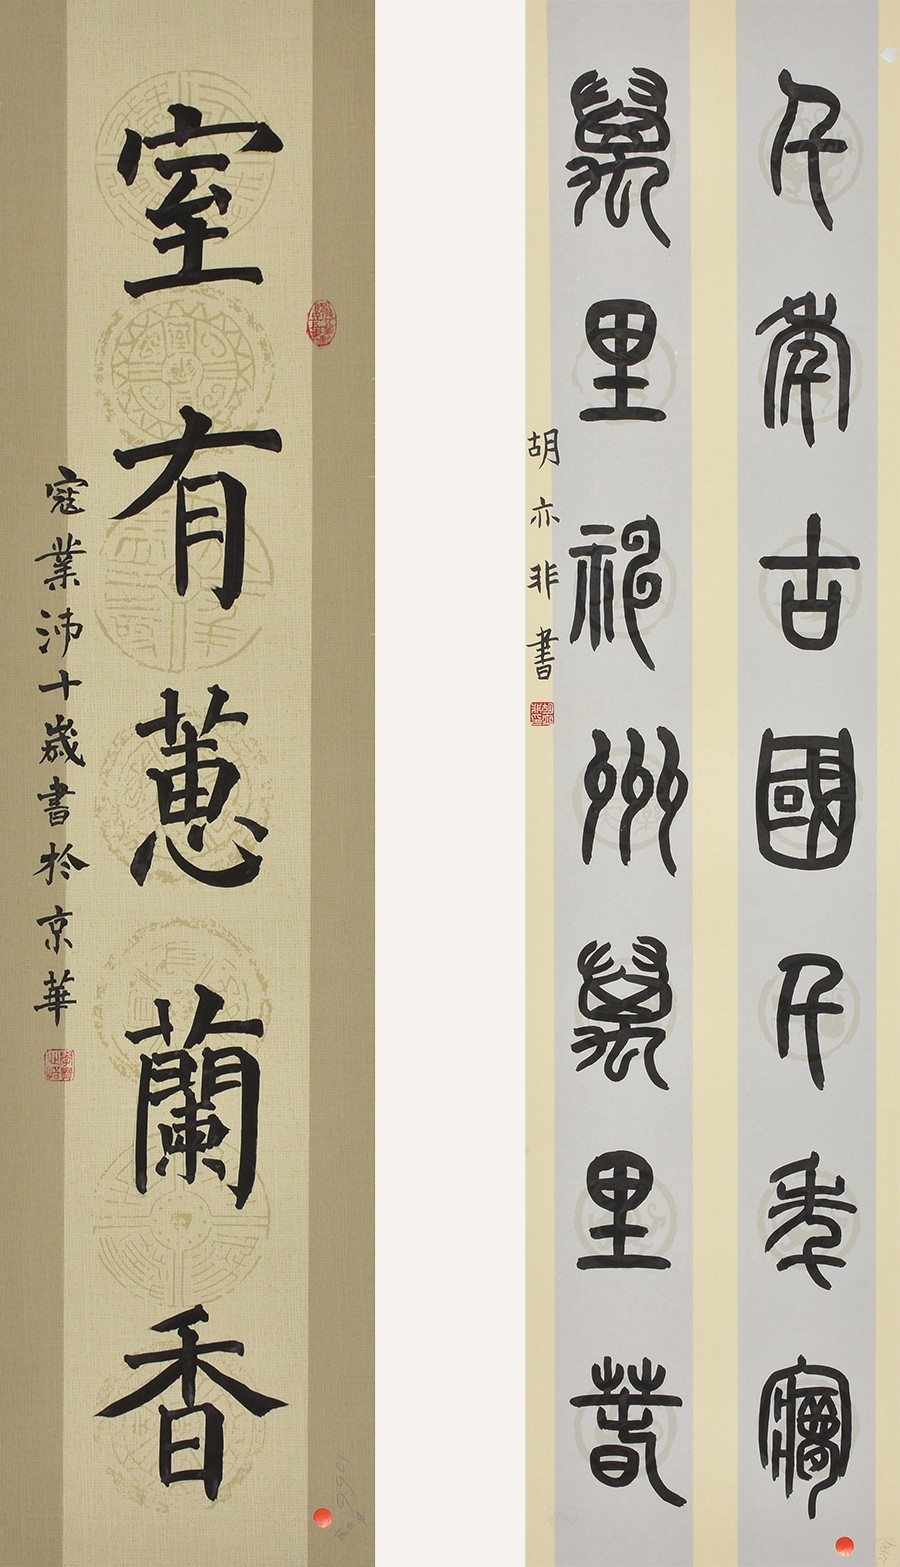 千年古國千年夢
萬里神州萬里春
胡亦非書
室有蕙蘭香
寇業沛十歲書於京華